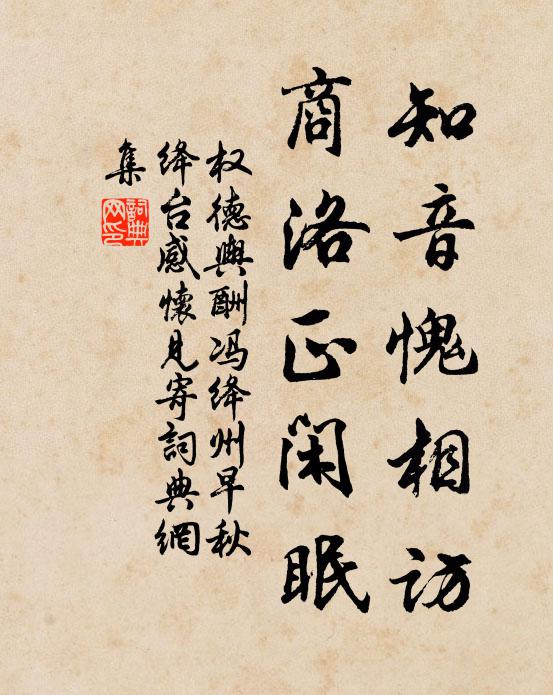 知音愧相访
商洛正闲眠
权德輿酬冯绛州早秋
绛台感懷见寄詞典網
集
詞典
网印